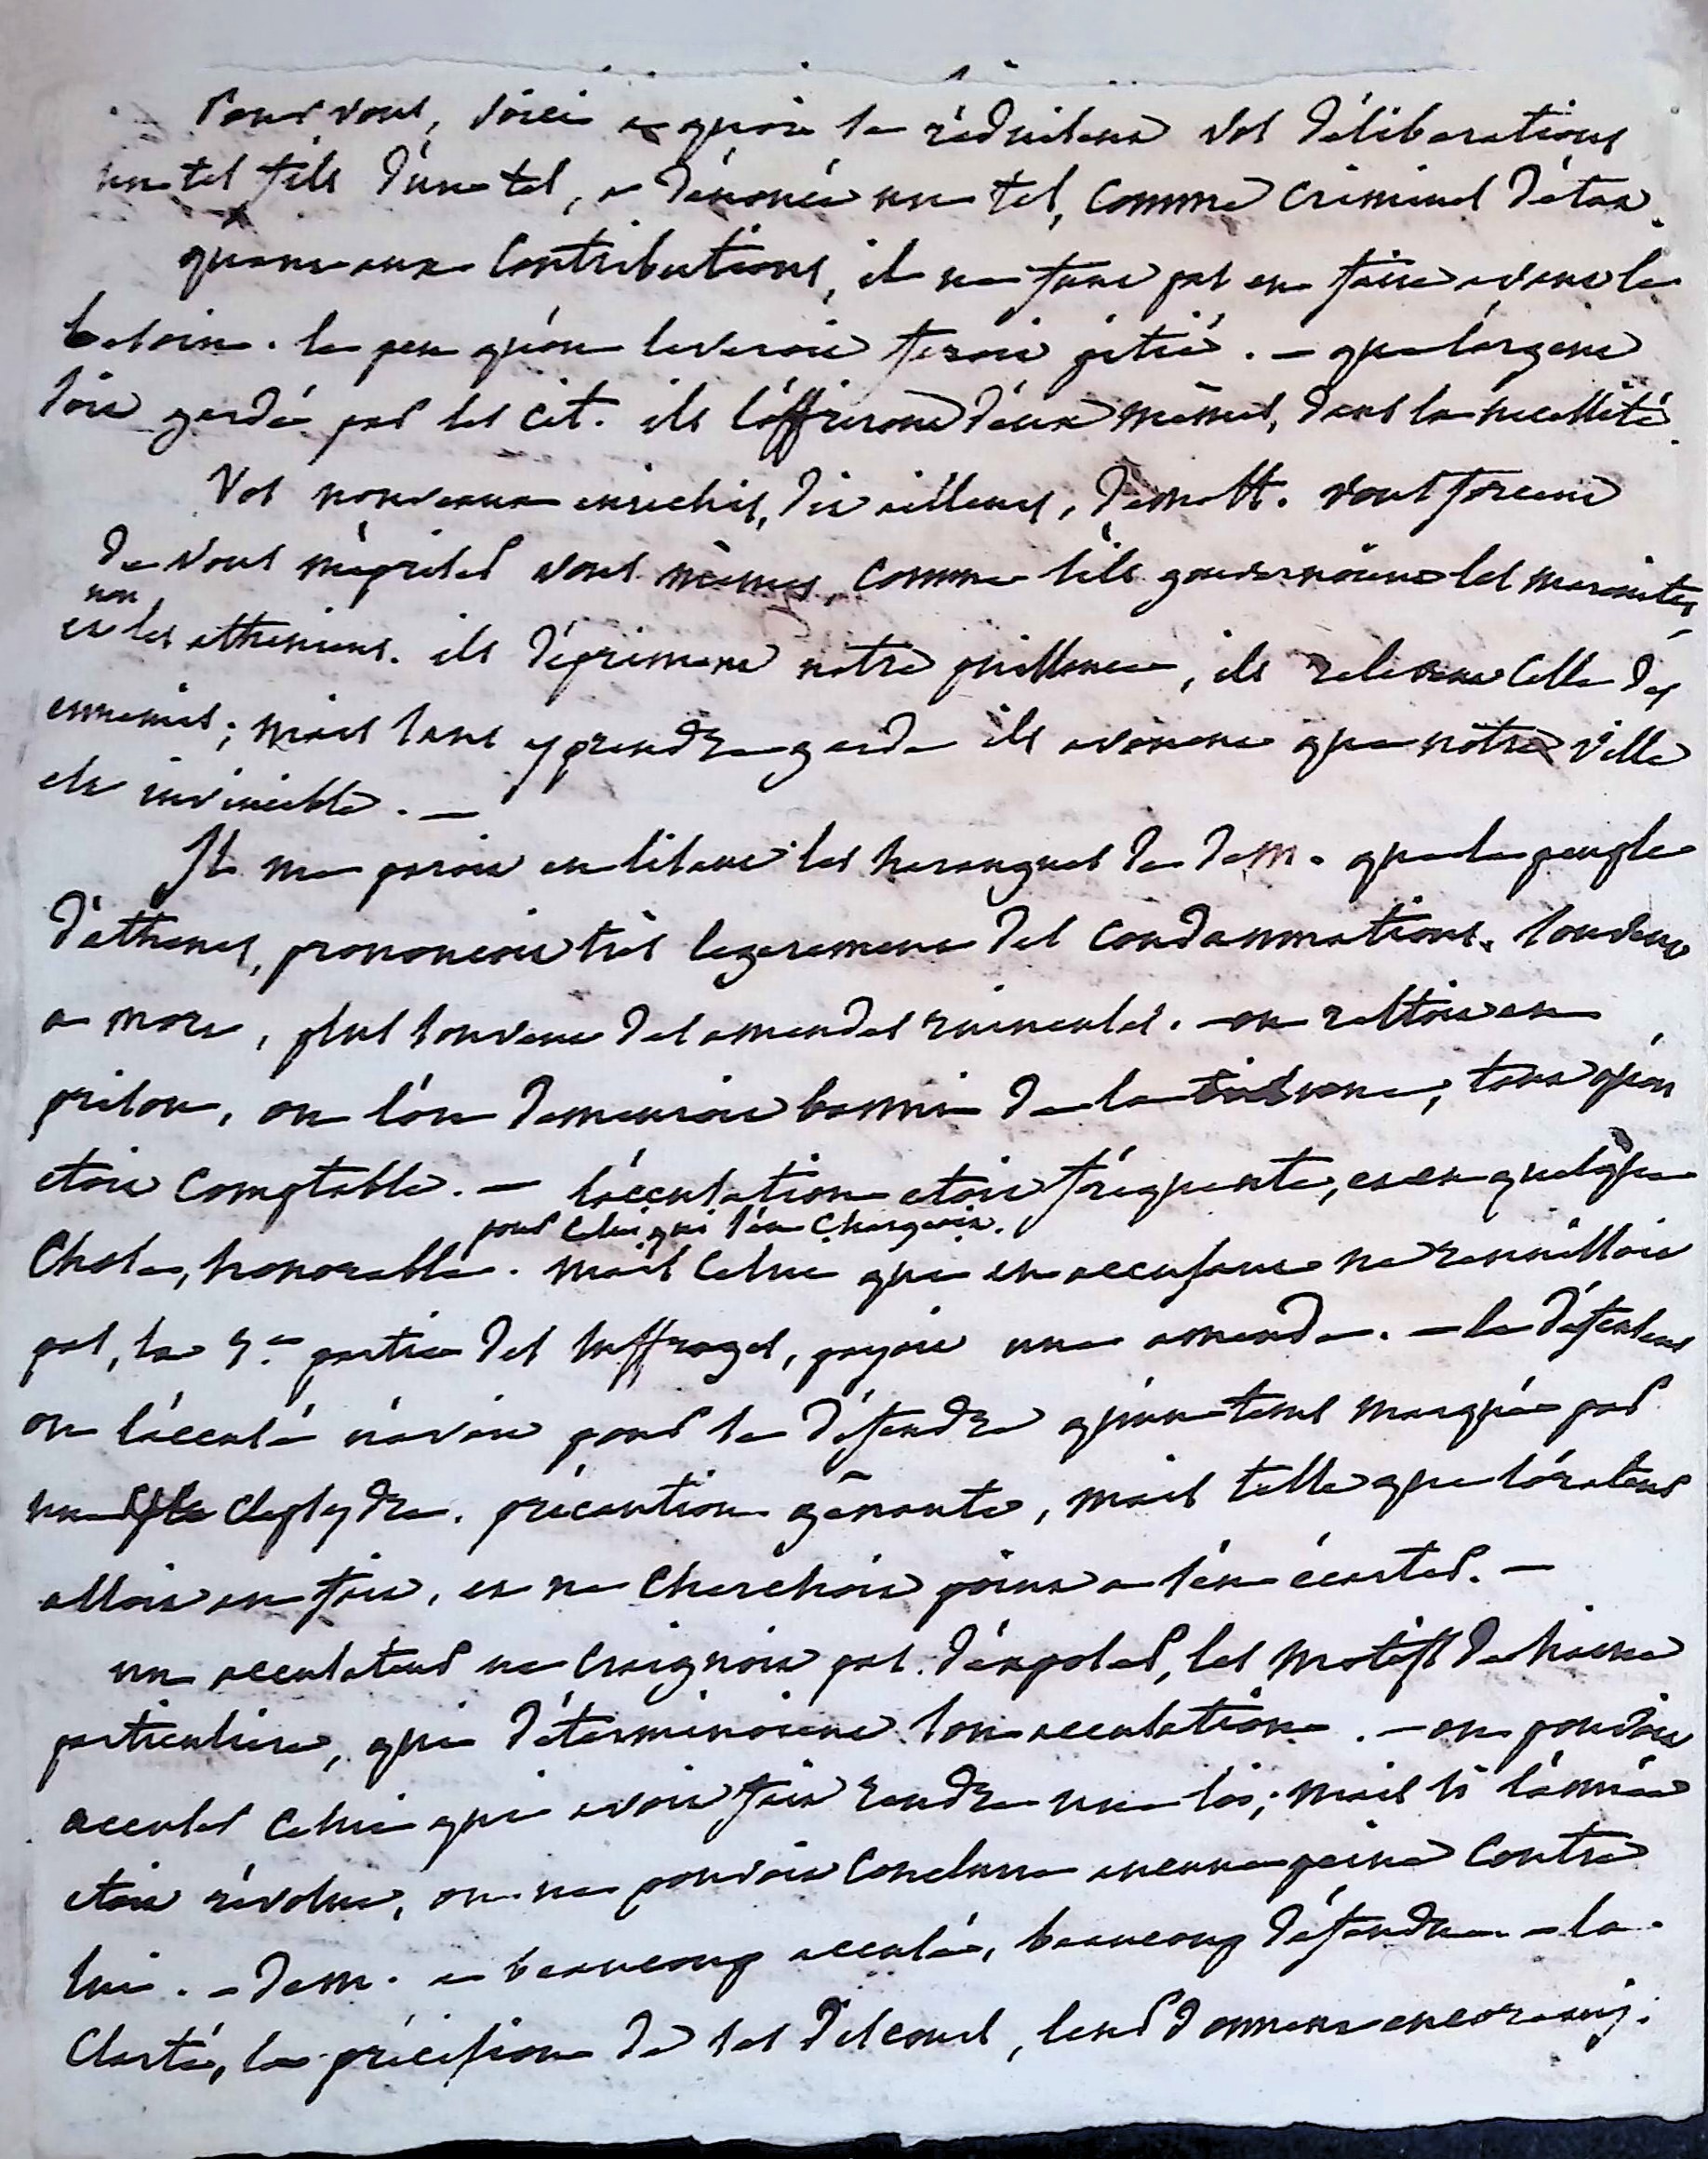 Pour vous, voici a quoi se réduisent vos délibérations
un tel fils d'un tel, a dénoncé un tel, comme criminel d'état.
quant aux contributions, il ne faut pas en faire avant le
besoin. le peu qu'on leveroit feroit pitié. — que l'argent
soit gardé par les cit. ils l'offriront d'eux mêmes, dans la necessité.
Vos nouveaux enrichis, dit ailleurs, demosth. vous forcent
de vous mépriser vous mêmes, comme s'ils gouvernoient les
non
et les atheniens. ils dépriment notre puissance, ils relevent celle des
ennemis; mais sans y prendre garde ils avouent que notre ville
est invincible. —
Il me paroit en lisant les harangues de dem. que le peuple
d'athenes, prononcoit très legerement des condamnations. souvent
a mort, plus souvent des amendes ruineuses. — on restoit en
prison, on l'on demeuroit banni de la tribune, tant qu'on
etoit comptable. — l'accusation etoit fréquente, et en quelque
pour celui qui s'en chargeoit.
chose, honorable. mais celui qui en accusant ne recueilloit
pas, la 5.e partie des suffrages, payoit une amende. — le défenseur
ou l'accusé n'avoit pour se défendre qu'un tems marqué par
une clepsydre. précaution gênante, mais telle que l'orateur
alloit au fait, et ne cherchoit point a s'en écarter. —
un accusateur ne craignoit pas d'exposer, les motifs de haine
particuliere, qui déterminoient son accusation. — on pouvoit
accuser celui qui avoit fait rendre une loi; mais si l'année
etoit révolue, on ne pouvoit conclure aucune peine contre
lui. — dem. a beaucoup accusé, beaucoup défendu. — la
clarté, la précision de ses discours, leur donnent encore auj.